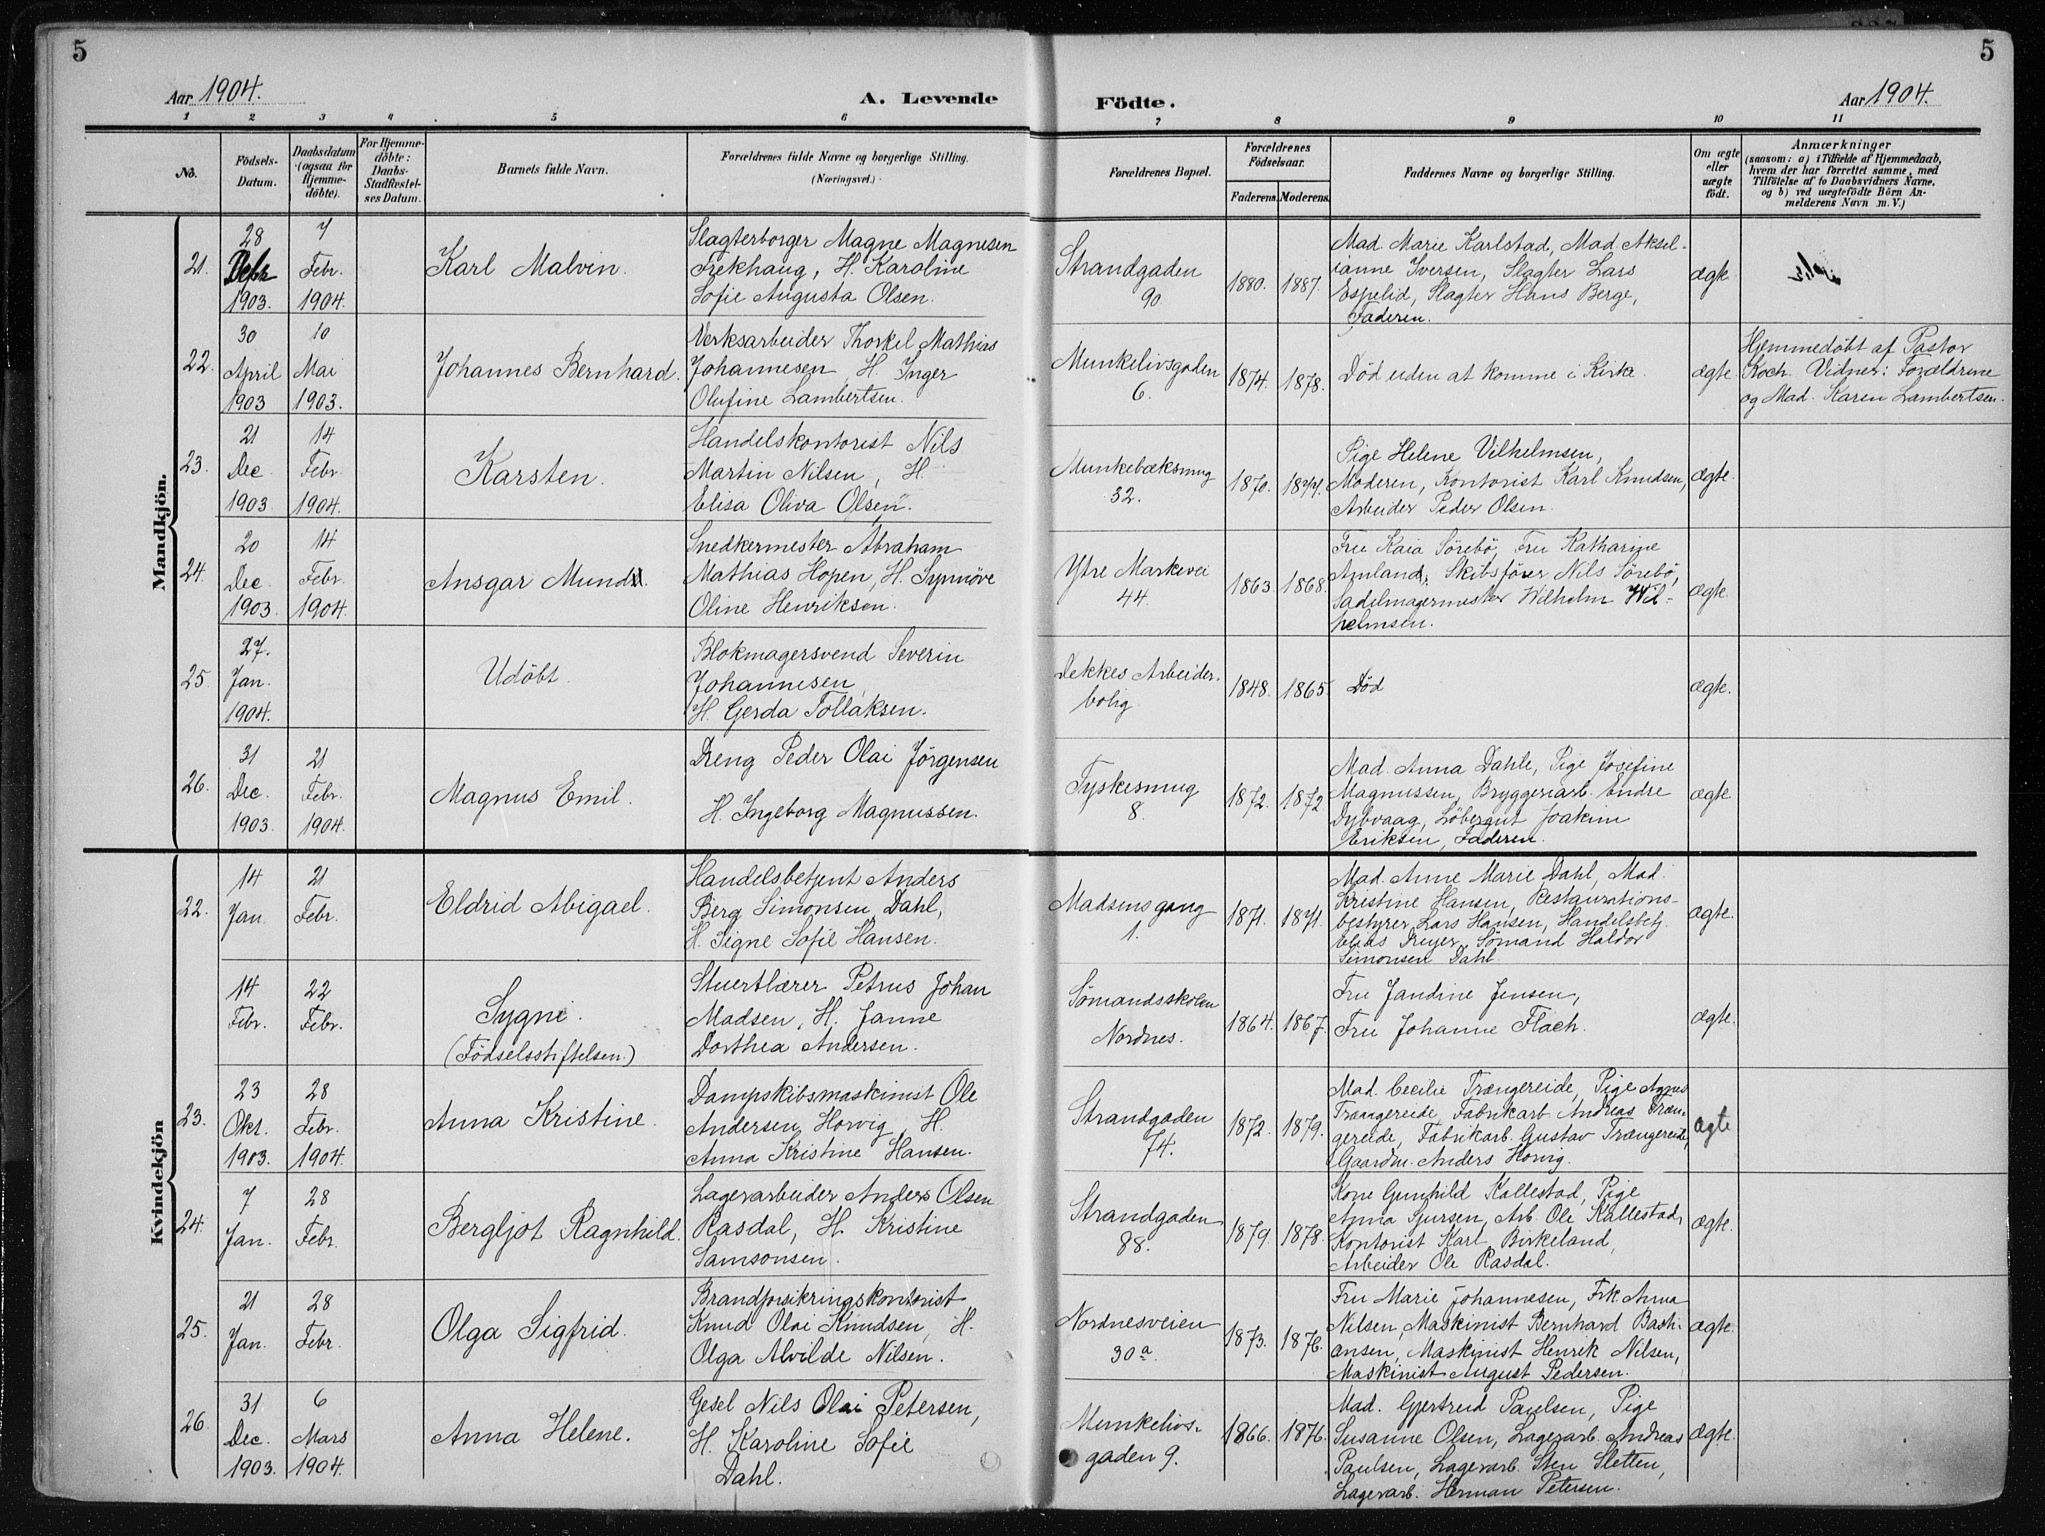 5
5
Aar 1904.
A. Levende
Födte.
Aar 1904.
1 2 3 4 5 6 7 8 9 10 11
No.
Födsels-
Datum.
Daabsdatum
(ogsaa for
Hjemme-
döbte).
For Hjemme-
döbte:
Daabs-
Stadfæstel-
ses Datum.
Barnets fulde Navn.
Forældrenes fulde Navne og borgerlige Stilling.
(Næringsvei.)
Forældrenes Bopæl.
Forældrenes
Födselsaar.
Faderens. Moderens.
Faddernes Navne og borgerlige Stilling.
Om ægte
eller
uægte
födt.
Anmærkninger
(saasom: a) i Tilfælde af Hjemmedaab,
hvem der har forrettet samme, med
Tilföielse af to Daabsvidners Navne,
og b) ved uægtefödte Börn An-
melderens Navn m. V.)
Mandkjön.
21.
28
Debr
1903.
7
Febr.
1904.
Karl Malvin.
Slagterborger Magne Magnesen
Frekhaug, H. Karoline
Sofie Augusta Olsen.
Strandgaden
90.
1880. 1887.
Mad. Marie Karlstad, Mad. Aksel-
ianne Iversen, Slagter Lars
Espelid, Slagter Hans Berge,
Faderen.
ægte
22.
30
April
1903
10
Mai
1903.
Johannes Bernhard.
Verksarbeider Thorkel Mathias
Johannesen, H. Inger
Olufine Lambertsen.
Munkelivsgaden
6.
1874. 1878.
Död uden at komme i Kirke.
ægte
Hjemmedöbt af Pastor
Koch. Vidner: Forældrene
og Mad. Karen Lambertsen.
23.
21
Dec.
1903
14
Febr.
1904.
Karsten.
Handelskontorist Nils
Martin Nilsen, H.
Elisa Oliva Olsen.
Munkebæksmug
32.
1870. 1877.
Pige Helene Vilhelmsen,
Moderen, Kontorist Karl Knudsen,
Arbeider Peder Olsen.
ægte.
24.
20
Dec.
1903.
14
Febr.
1904.
Ansgar Mund.
Snedkermester Abraham
Mathias Hopen, H. Synnöve
Oline Henriksen.
Ytre Markevei
44.
1863. 1868.
Fru Kaia Sörebö, Fru Katharine
Amland, Skibsförer Nils Sörebö,
Sadelmagermester Wilhelm Wil-
helmsen.
ægte.
25.
27.
Jan.
1904.
Udöbt.
Blokmagersvend Severin
Johannesen,
H. Gerda Tollaksen.
Dekkes Arbeider-
bolig
1848. 1865.
Död
ægte.
26.
31
Dec.
1903.
21
Febr.
1904.
Magnus Emil.
Dreng Peder Olai Jörgensen
H. Ingeborg Magnussen.
Tyskesmug
8.
1872. 1872
Mad. Anna Dahle, Pige Josefine
Magnussen, Bryggeriarb. Andre
Dybvaag, Löbergut Joakim
Eriksen, Faderen.
ægte.
Kvindekjön
22.
14
Jan.
21
Febr.
Eldrid Abigael.
Handelsbetjent Anders
Berg Simonsen Dahl,
H. Signe Sofie Hansen.
Madsens gang
1.
1871. 1871.
Mad. Anne Marie Dahl, Mad.
Kristine Hansen, Restaurations-
bestyrer Lars Hansen, Handelsbetj.
Claus Dreyer, Sömand Haldor
Simonsen Dahl.
ægte.
14
Febr.
22
Febr.
Sygni.
(Födselsstiftelsen.)
Stuertlærer Petrus Johan
Madsen, H. Janne
Dorthea Andersen.
Sömandsskolen
Nordnes.
1864. 1867.
Fru Jandine Jensen,
Fru Johanne Flach.
ægte.
23.
23
Okt.
1903.
28
Febr.
1904.
Anna Kristine.
Dampskibsmaskinist Ole
Andersen Horvig, H.
Anna Kristine Hansen.
Strandgaden
74.
1872. 1879.
Mad. Cecilie Trængereide, Pige Agnes
Trængereide, Fabrikarb. Andreas Træn-
gereide, Fabrikarb. Gustav Trængereide,
Gaardm. Anders Horvig.
ægte
24.
7
Jan.
28
Febr.
Bergljot Ragnhild.
Lagerarbeider Anders Olsen
Rasdal, H. Kristine
Samsonsen.
Strandgaden
88.
1879. 1878.
Kone Gunhild Kallestad, Pige
Anna Sjursen, Arb. Ole Kallestad,
Kontorist Karl Birkeland,
Arbeider Ole Rasdal.
ægte.
25.
21
Jan.
28
Febr.
Olga Sigfrid.
Brandforsikringskontorist
Knud Olai Knudsen, H.
Olga Alvilde Nilsen.
Nordnesveien
30a.
1873. 1876.
Fru Marie Johannesen, Frk Anna
Nilsen, Maskinist Bernhard Basti-
ansen, Maskinist Henrik Nilsen,
Maskinist August Pedersen.
ægte.
26.
31
Dec.
1903.
6
Mars
1904.
Anna Helene.
Gesel Nils Olai Petersen,
H. Karoline Sofie
Dahl.
Munkelivs-
gaden 9.
1866. 1876.
Mad. Gjertrud Paulsen, Pige
Susanne Olsen, Lagerarb. Andreas
Paulsen, Lagerarb. Sten Sletten,
Lagerarb. Herman Petersen.
ægte.